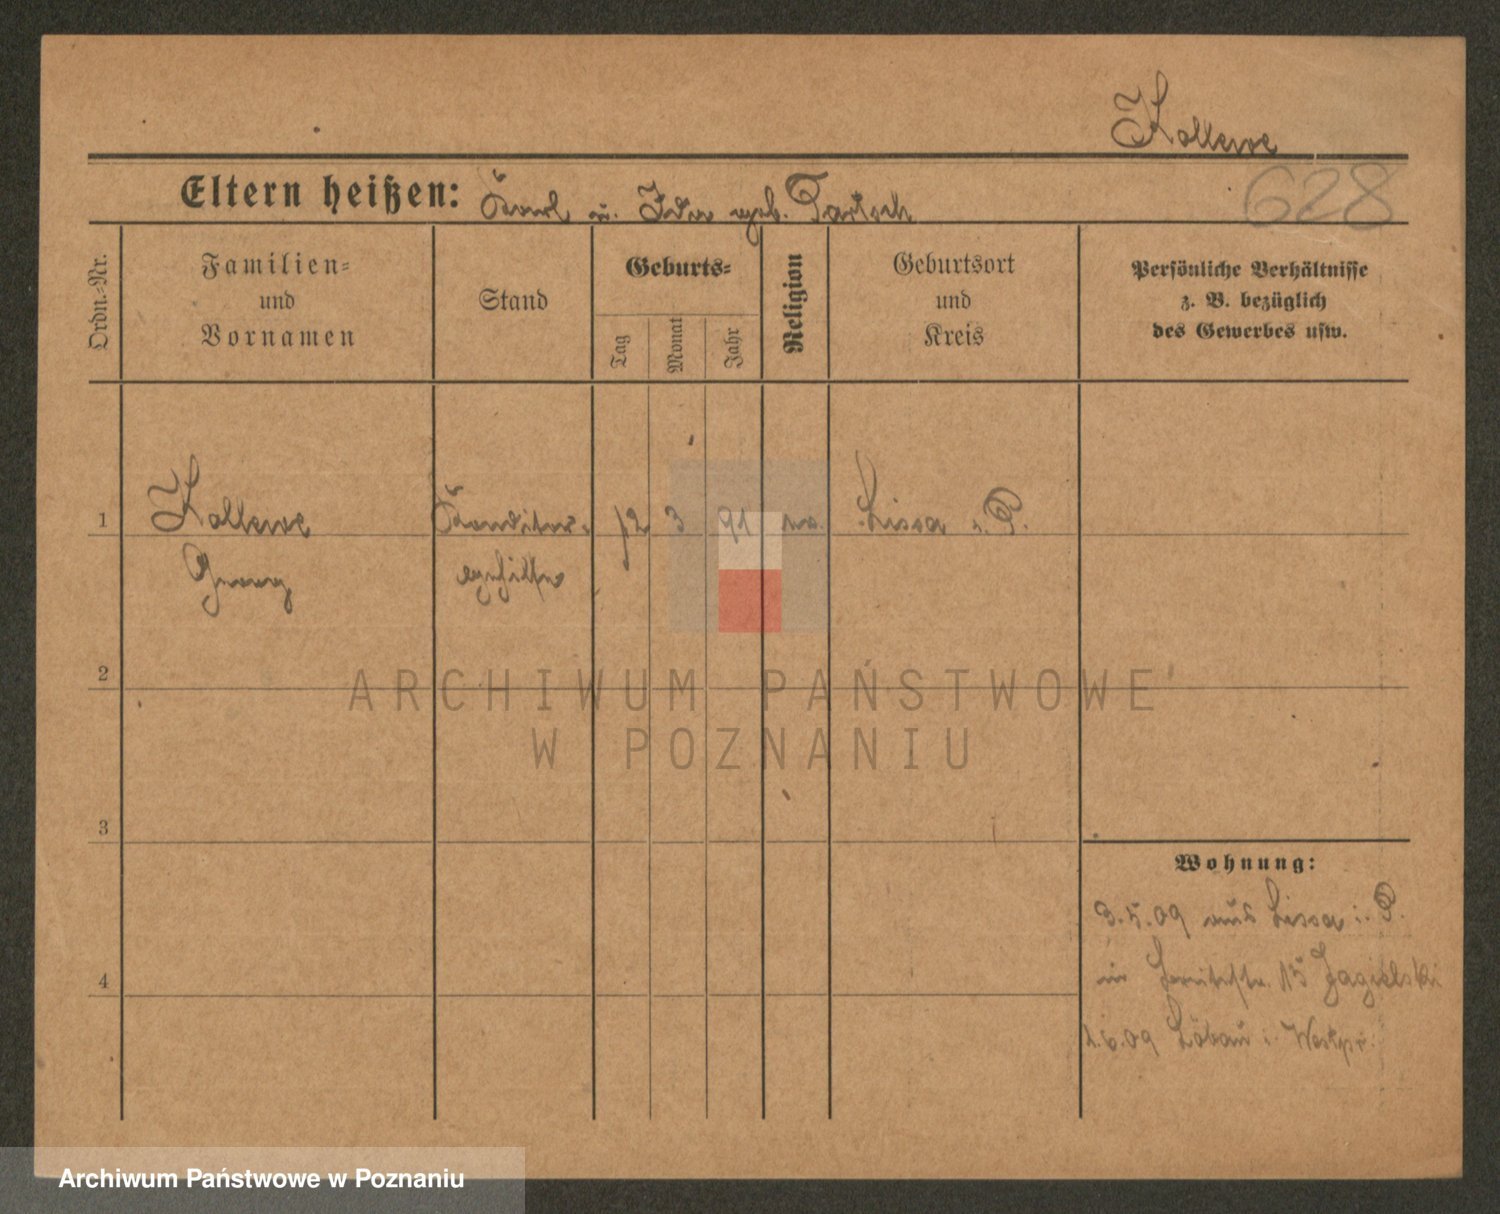 Kallewe
628
Eltern heißen: Karl u. Ida geb. Bartsch
Ordn.-Nr.
Familien-
und
Vornamen
Stand
Geburts-
Tag
Monat
Jahr
Religion
Geburtsort
und
Kreis
Persönliche Verhältnisse
z. B. bezüglich
des Gewerbes usw.
1 Kallewe Konditor- 12 3 91 ev. Lissa i. P.
Georg gehilfe
2
3
4
Wohnung:
3.5.09 aus Lissa i. P.
in 15 Jagielski
2.6.09 Löbau i. Westpr.
ARCHIWUM PAŃSTWOWE
W POZNANIU
Archiwum Państwowe w Poznaniu